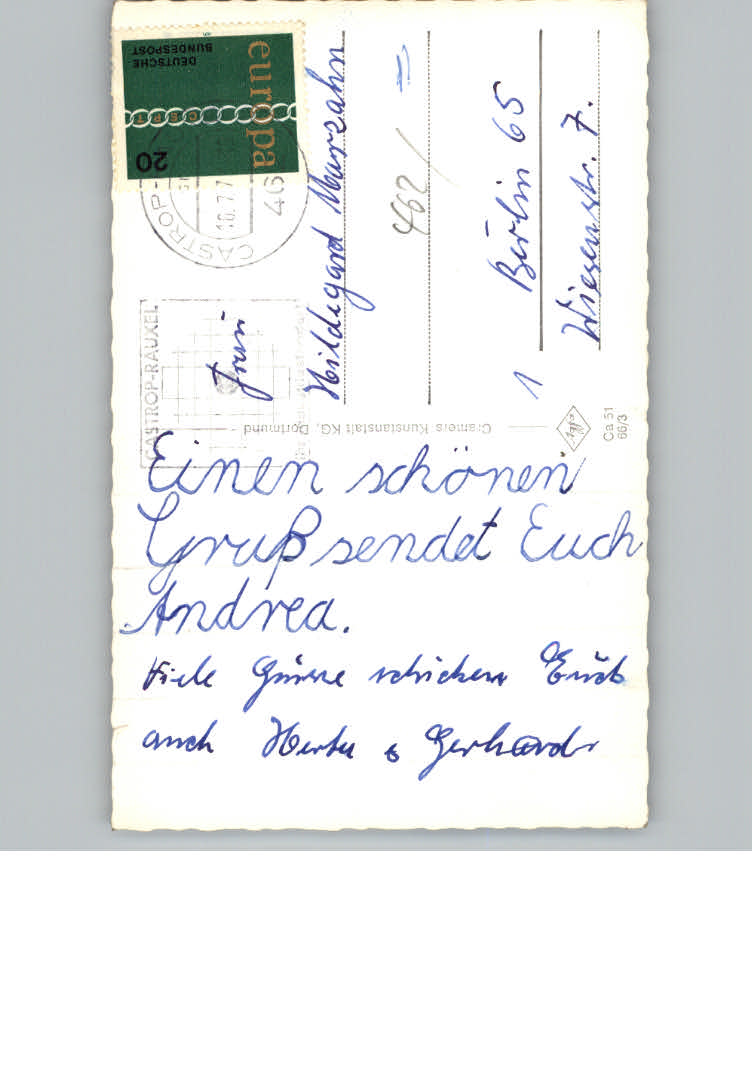 Einen schönen
Gruß sendet Euch
Andrea.
Viele Grüsse schicken Euch
auch Herta & Gerhard
Frau
Hildegard Marzahn
462/ =
1 Berlin 65
Wiesenstr. 7.
DEUTSCHE
BUNDESPOST
europa
CEPT
20
CASTROP-
16.7.7
46
CASTROP-RAUXEL
Cramers Kunstanstalt KG, Dortmund
Agfa
Ca 51
66/3